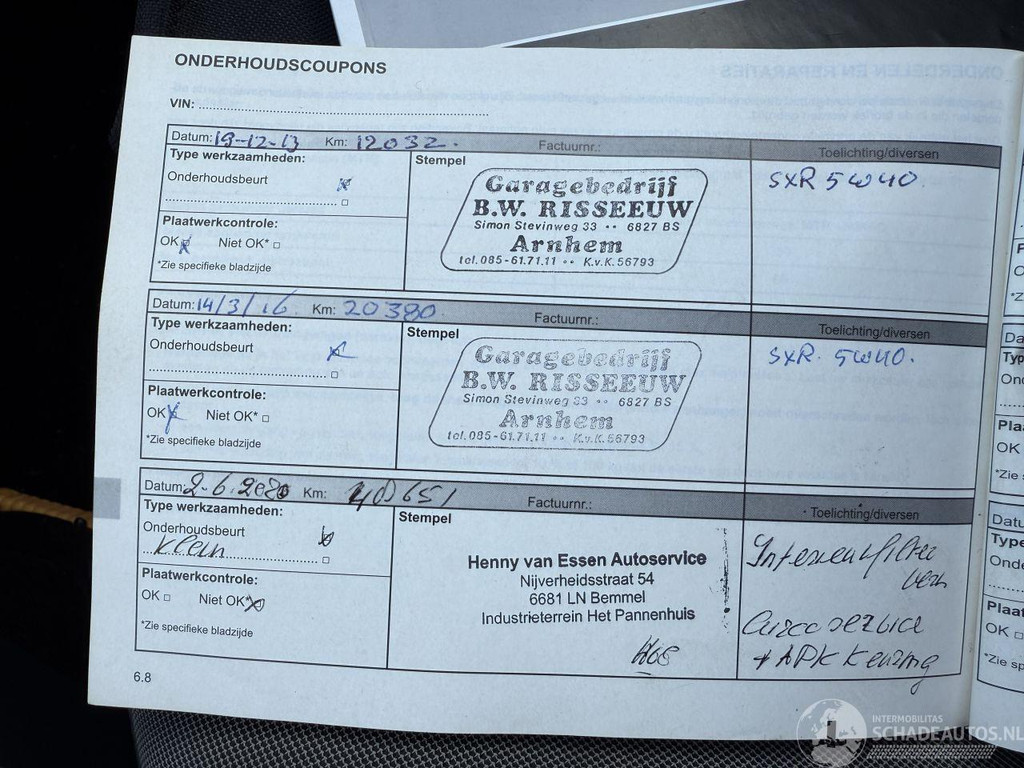 ONDERHOUDSCOUPONS
VIN:
Datum: 19-12-13 Km: 12032. Factuurnr.: Toelichting/diversen
Type werkzaamheden:
Stempel
Onderhoudsbeurt
SXR 5W40.
Garagebedrijf
B.W. RISSEEUW
Simon Stevinweg 33 •• 6827 BS
Arnhem
tel. 085-61.71.11 •• K.v.K. 56793
Plaatwerkcontrole:
OK Niet OK*
*Zie specifieke bladzijde
Datum: 14/3/16 Km: 20380. Factuurnr.: Toelichting/diversen
Type werkzaamheden:
Stempel
Onderhoudsbeurt
SXR. 5W40.
Garagebedrijf
B.W. RISSEEUW
Simon Stevinweg 33 •• 6827 BS
Arnhem
tel. 085-61.71.11 •• K.v.K. 56793
Plaatwerkcontrole:
OK Niet OK*
*Zie specifieke bladzijde
Datum: 2-6.2020 Km: 40651 Factuurnr.: Toelichting/diversen
Type werkzaamheden:
Stempel
Onderhoudsbeurt
Klein
Henny van Essen Autoservice
Nijverheidsstraat 54
6681 LN Bemmel
Industrieterrein Het Pannenhuis
Aircoservice
+ APK Keuring
Plaatwerkcontrole:
OK Niet OK*
*Zie specifieke bladzijde
6.8
INTERMOBILITAS
SCHADEAUTOS.NL